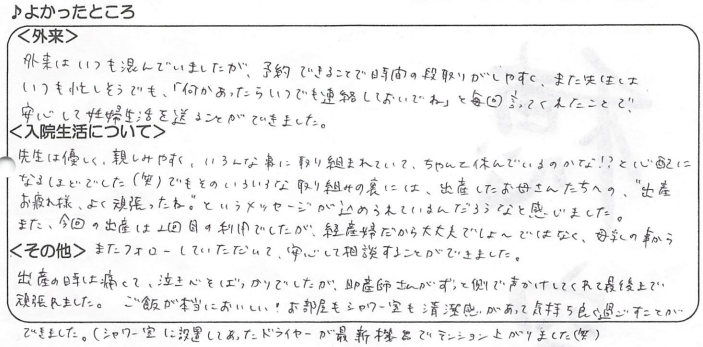 ♪よかったところ
<外来>
外来はいつも混んでいましたが、予約できることで時間の段取りがしやすく、また先生は
いつも忙しそうでも、「何かあったらいつでも連絡しておいでね」と毎回言ってくれたことで
安心して妊婦生活を送ることができました。
<入院生活について>
先生は優しく、親しみやすく、いろんな事に取り組まれていて、ちゃんと休んでいるのかな!?と心配に
なるほどでした(笑)でもそのいろいろな取り組みの裏には、出産したお母さんたちへの、"出産
お疲れ様、よく頑張ったね"というメッセージが込められているんだろうなと感じました。
また、今回の出産は2回目の利用でしたが、経産婦だから大丈夫でしょ〜ではなく、母乳の事から
<その他> またフォローしていただいて、安心して相談することができました。
出産の時は痛くて、泣きべそばっかりでしたが、助産師さんがずっと側で声かけしてくれて最後まで
頑張れました。 ご飯が本当においしい!お部屋もシャワー室も清潔感があって気持ち良く過ごすことが
できました。(シャワー室に設置してあったドライヤーが最新機器でテンション上がりました(笑)